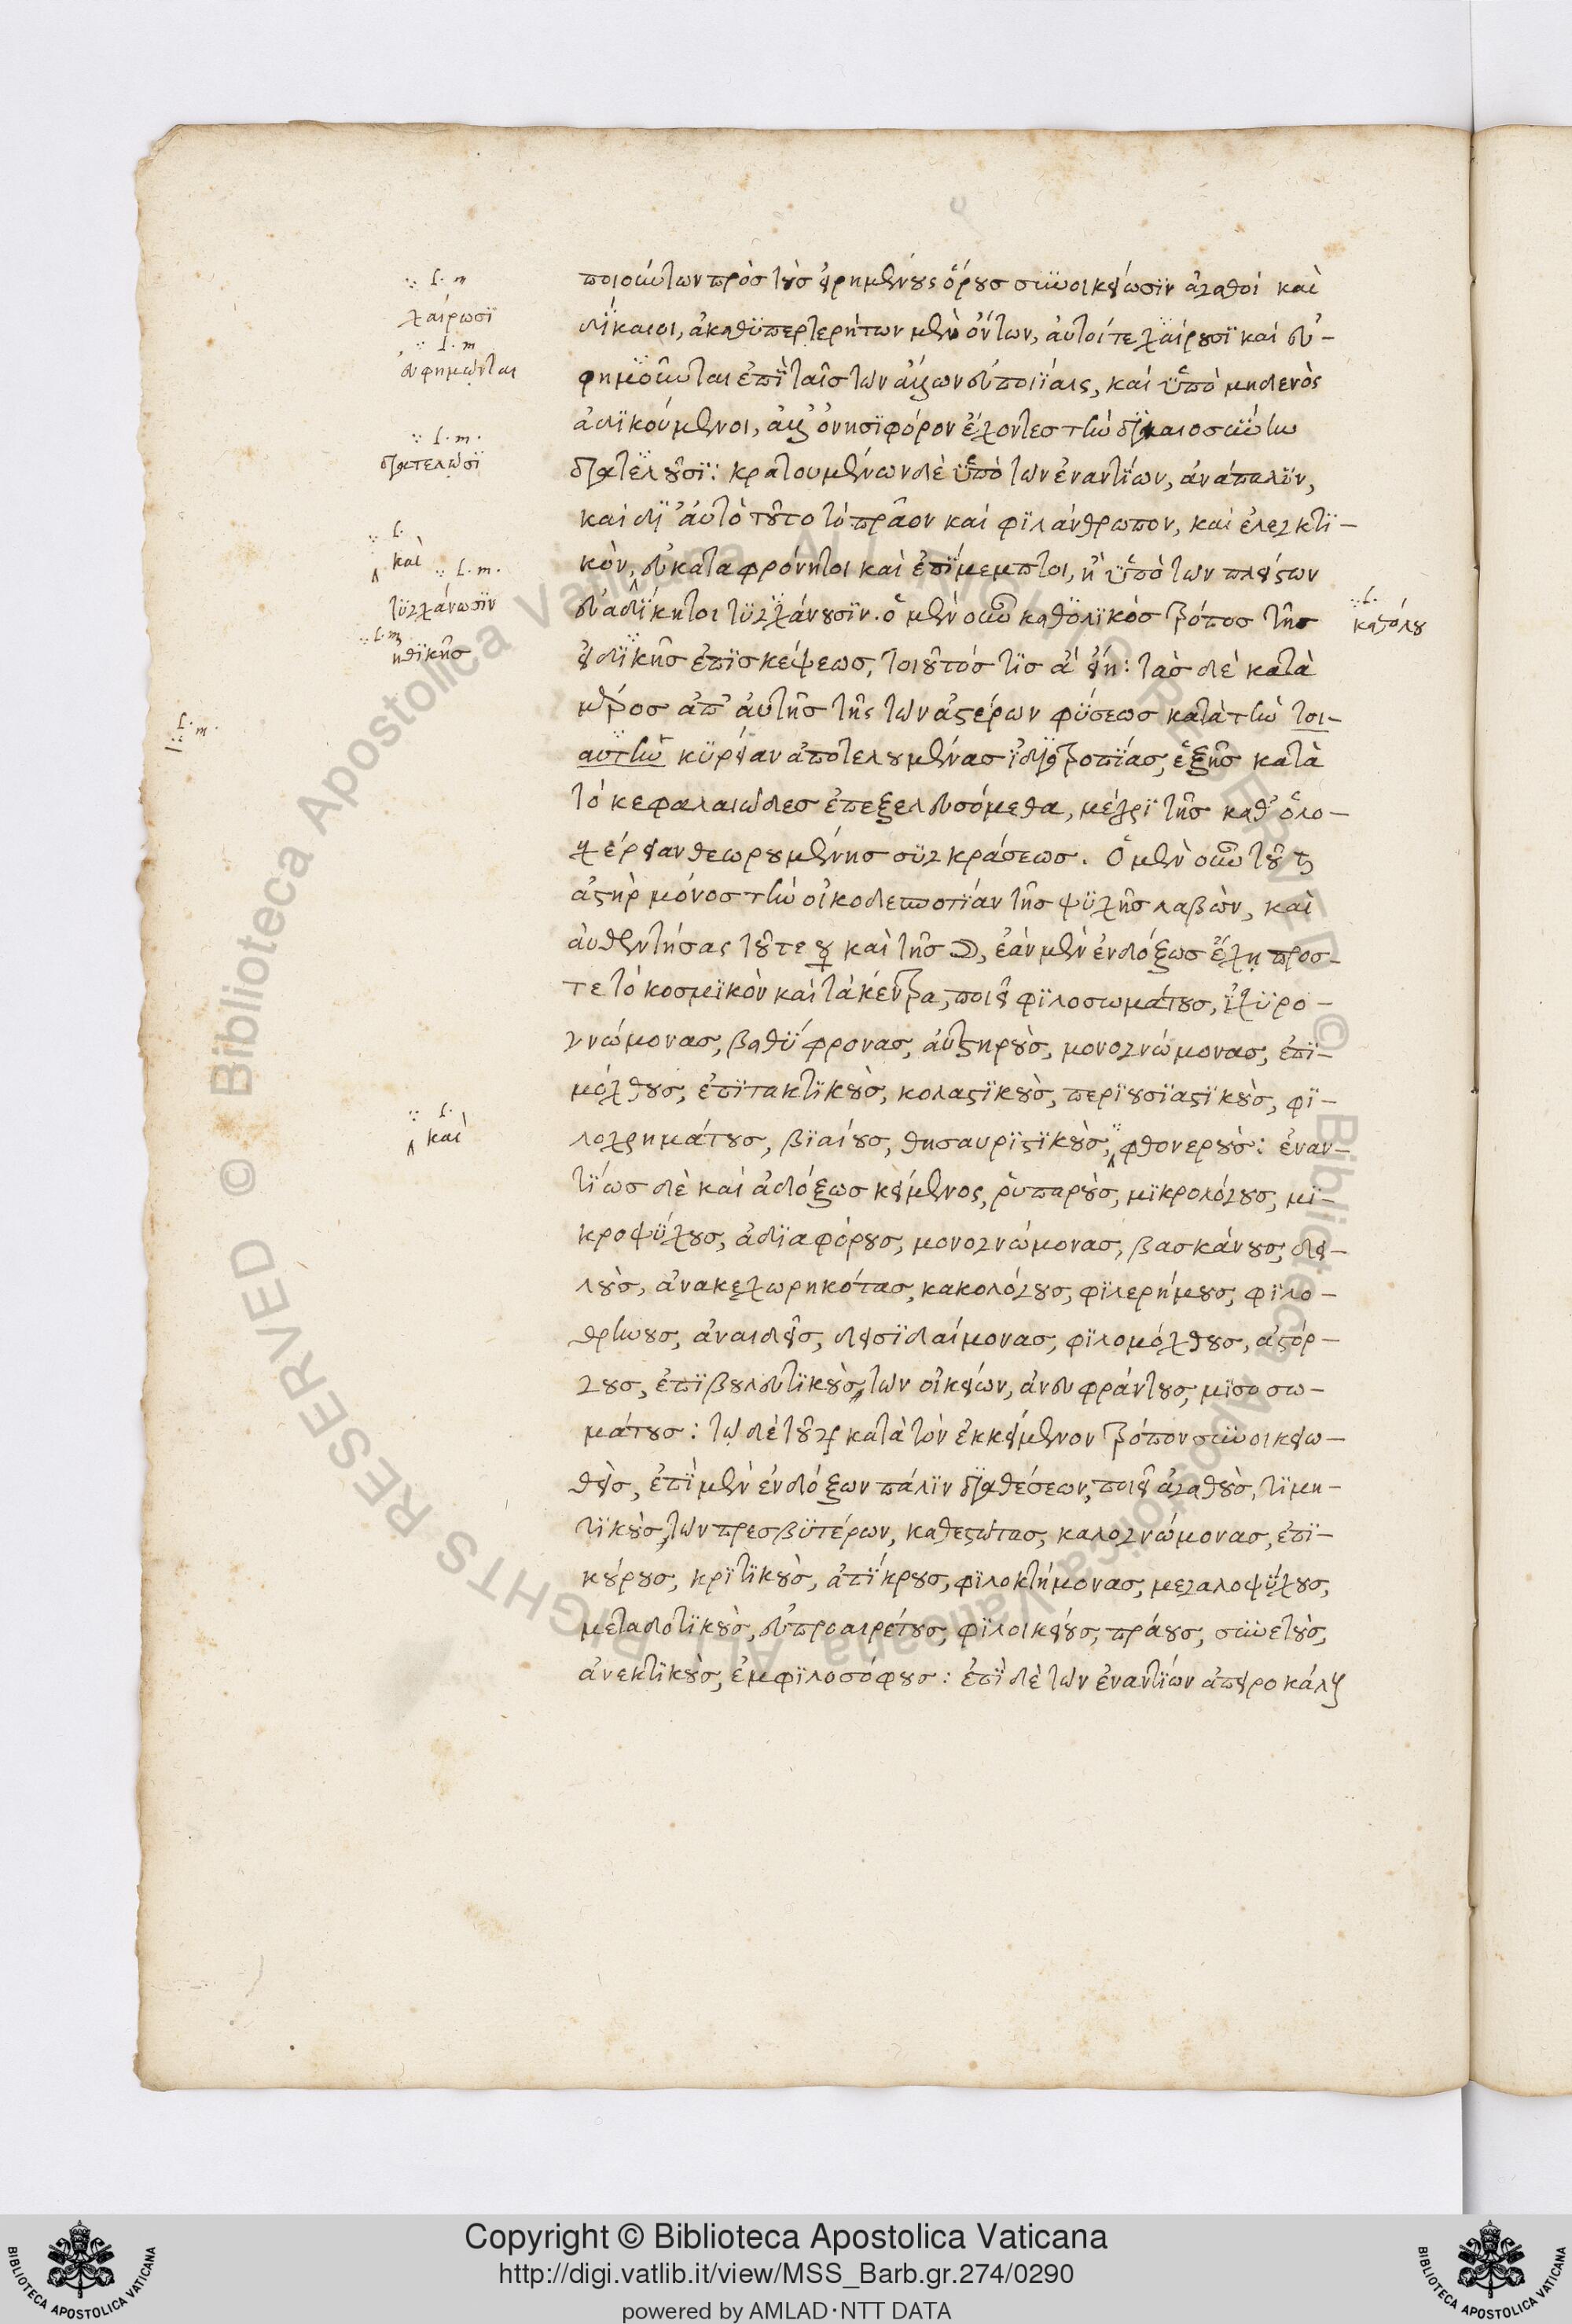 ποιούντων πρὸς τοὺς εἰρημένους ὅρους συνοικειώσϊν ἀγαθοὶ καὶ
δίκαιοι, ἀκαθϋπερτερήτων μὲν ὄντων, αὐτοί τε χαίρουσϊ καὶ εὐ-
φημοῦνται ἐπϊ ταῖς τῶν ἄλλων εὐποιΐαις, καὶ ὑπὸ μηδενὸς
ἀδϊκούμενοι, ἀλλ' ὀνησϊφόρον ἔχοντες τὴν δϊκαιοσύνην
δϊατελοῦσϊ: κρατουμένων δὲ ὑπὸ τῶν ἐναντίων, ἀνάπαλϊν,
καὶ δϊ' αὐτὸ τοῦτο τὸ πρᾶον καὶ φϊλάνθρωπον, καὶ ἐλεγκτϊ-
κὸν, εὐκαταφρόνητοι καὶ ἐπΐμεμπτοι, ἢ ὑπὸ τῶν πλείστων
εὐαδΐκητοι τϋγχάνουσϊν. ὁ μὲν οὖν καθολϊκὸς τρόπος τῆς
εἰδϊκῆς ἐπϊσκέψεως, τοιοῦτός τϊς ἂ εἴη: τὰς δὲ κατὰ
μέρος ἀπ' αὐτῆς τῆς τῶν ἀστέρων φύσεως κατὰ τὴν τοι-
αύτην κϋρείαν ἀποτελουμένας ϊδϊοτροπΐας, ἑξῆς κατὰ
τὸ κεφαλαιώδες ἐπεξελευσόμεθα, μέχρϊ τῆς καθ' ὅλο-
χέρειαν θεωρουμένης σϋγκράσεως. Ὁ μὲν οὖν τοῦ ♄
ἀστὴρ μόνος τὴν οἰκοδεσποτϊάν τῆς ψϋχῆς λαβὼν, καὶ
αὐθεντήσας τοῦ τε ☿ καὶ τῆς ☽, ἐὰν μὲν ἐνδόξως ἔχῃ προσ-
τε τὸ κοσμϊκὸν καὶ τὰ κέντρα, ποιεῖ φϊλοσωμάτους, ἰσχϋρο-
γνώμονας, βαθΰφρονας, αὐστηροὺς, μονογνώμονας, ἐπϊ-
μόχθους, ἐπϊτακτϊκοὺς, κολαστϊκοὺς, περϊουσϊαστϊκοὺς, φϊ-
λοχρημάτους, βϊαίους, θησαυρϊστϊκοὺς, φθονεροὺς: ἐναν-
τΐως δὲ καὶ ἀδόξως κείμενος, ῥυπαροὺς, μϊκρολόγους, μϊ-
κροψΰχους, ἀδϊαφόρους, μονογνώμονας, βασκάνους, δει-
λοὺς, ἀνακεχωρηκότας, κακολόγους, φϊλερήμους, φϊλο-
θρήνους, ἀναιδεῖς, δεισϊδαίμονας, φϊλομόχθους, ἀστόρ-
γους, ἐπϊβουλευτϊκοὺς, τῶν οἰκείων, ἀνευφράντους, μϊσοσω-
μάτους: τῷ δὲ τοῦ ♃ κατὰ τὸν ἐκκείμενον τρόπον συνοικειω-
θεὶς, ἐπϊ μὲν ἐνδόξων πάλϊν δϊαθέσεων, ποιεῖ ἀγαθοὺς, τϊμη-
τϊκοὺς, τῶν πρεσβϋτέρων, καθεστώτας, καλογνώμονας, ἐπϊ-
κούρους, κρϊτϊκοὺς, ἀπΐκρους, φϊλοκτήμονας, μεγαλοψΰχους,
μεταδοτϊκοὺς, εὐπροαιρέτους, φϊλοικείους, πράους, συνετοὺς,
ἀνεκτϊκοὺς, ἐμφϊλοσόφους: ἐπϊ δὲ τῶν ἐναντϊών ἀπειροκάλους
l. m
χαίρωσϊ
l. m
εὐφημῶνται
l. m.
δϊατελῶσϊ
l.
καὶ
l. m.
τϋγχάνωσϊν
l. m
ἠθϊκῆς
l. m.
l.
καὶ
l.
καθόλου
Copyright © Biblioteca Apostolica Vaticana
http://digi.vatlib.it/view/MSS_Barb.gr.274/0290
powered by AMLAD·NTT DATA
BIBLIOTECA APOSTOLICA VATICANA
BIBLIOTECA APOSTOLICA VATICANA